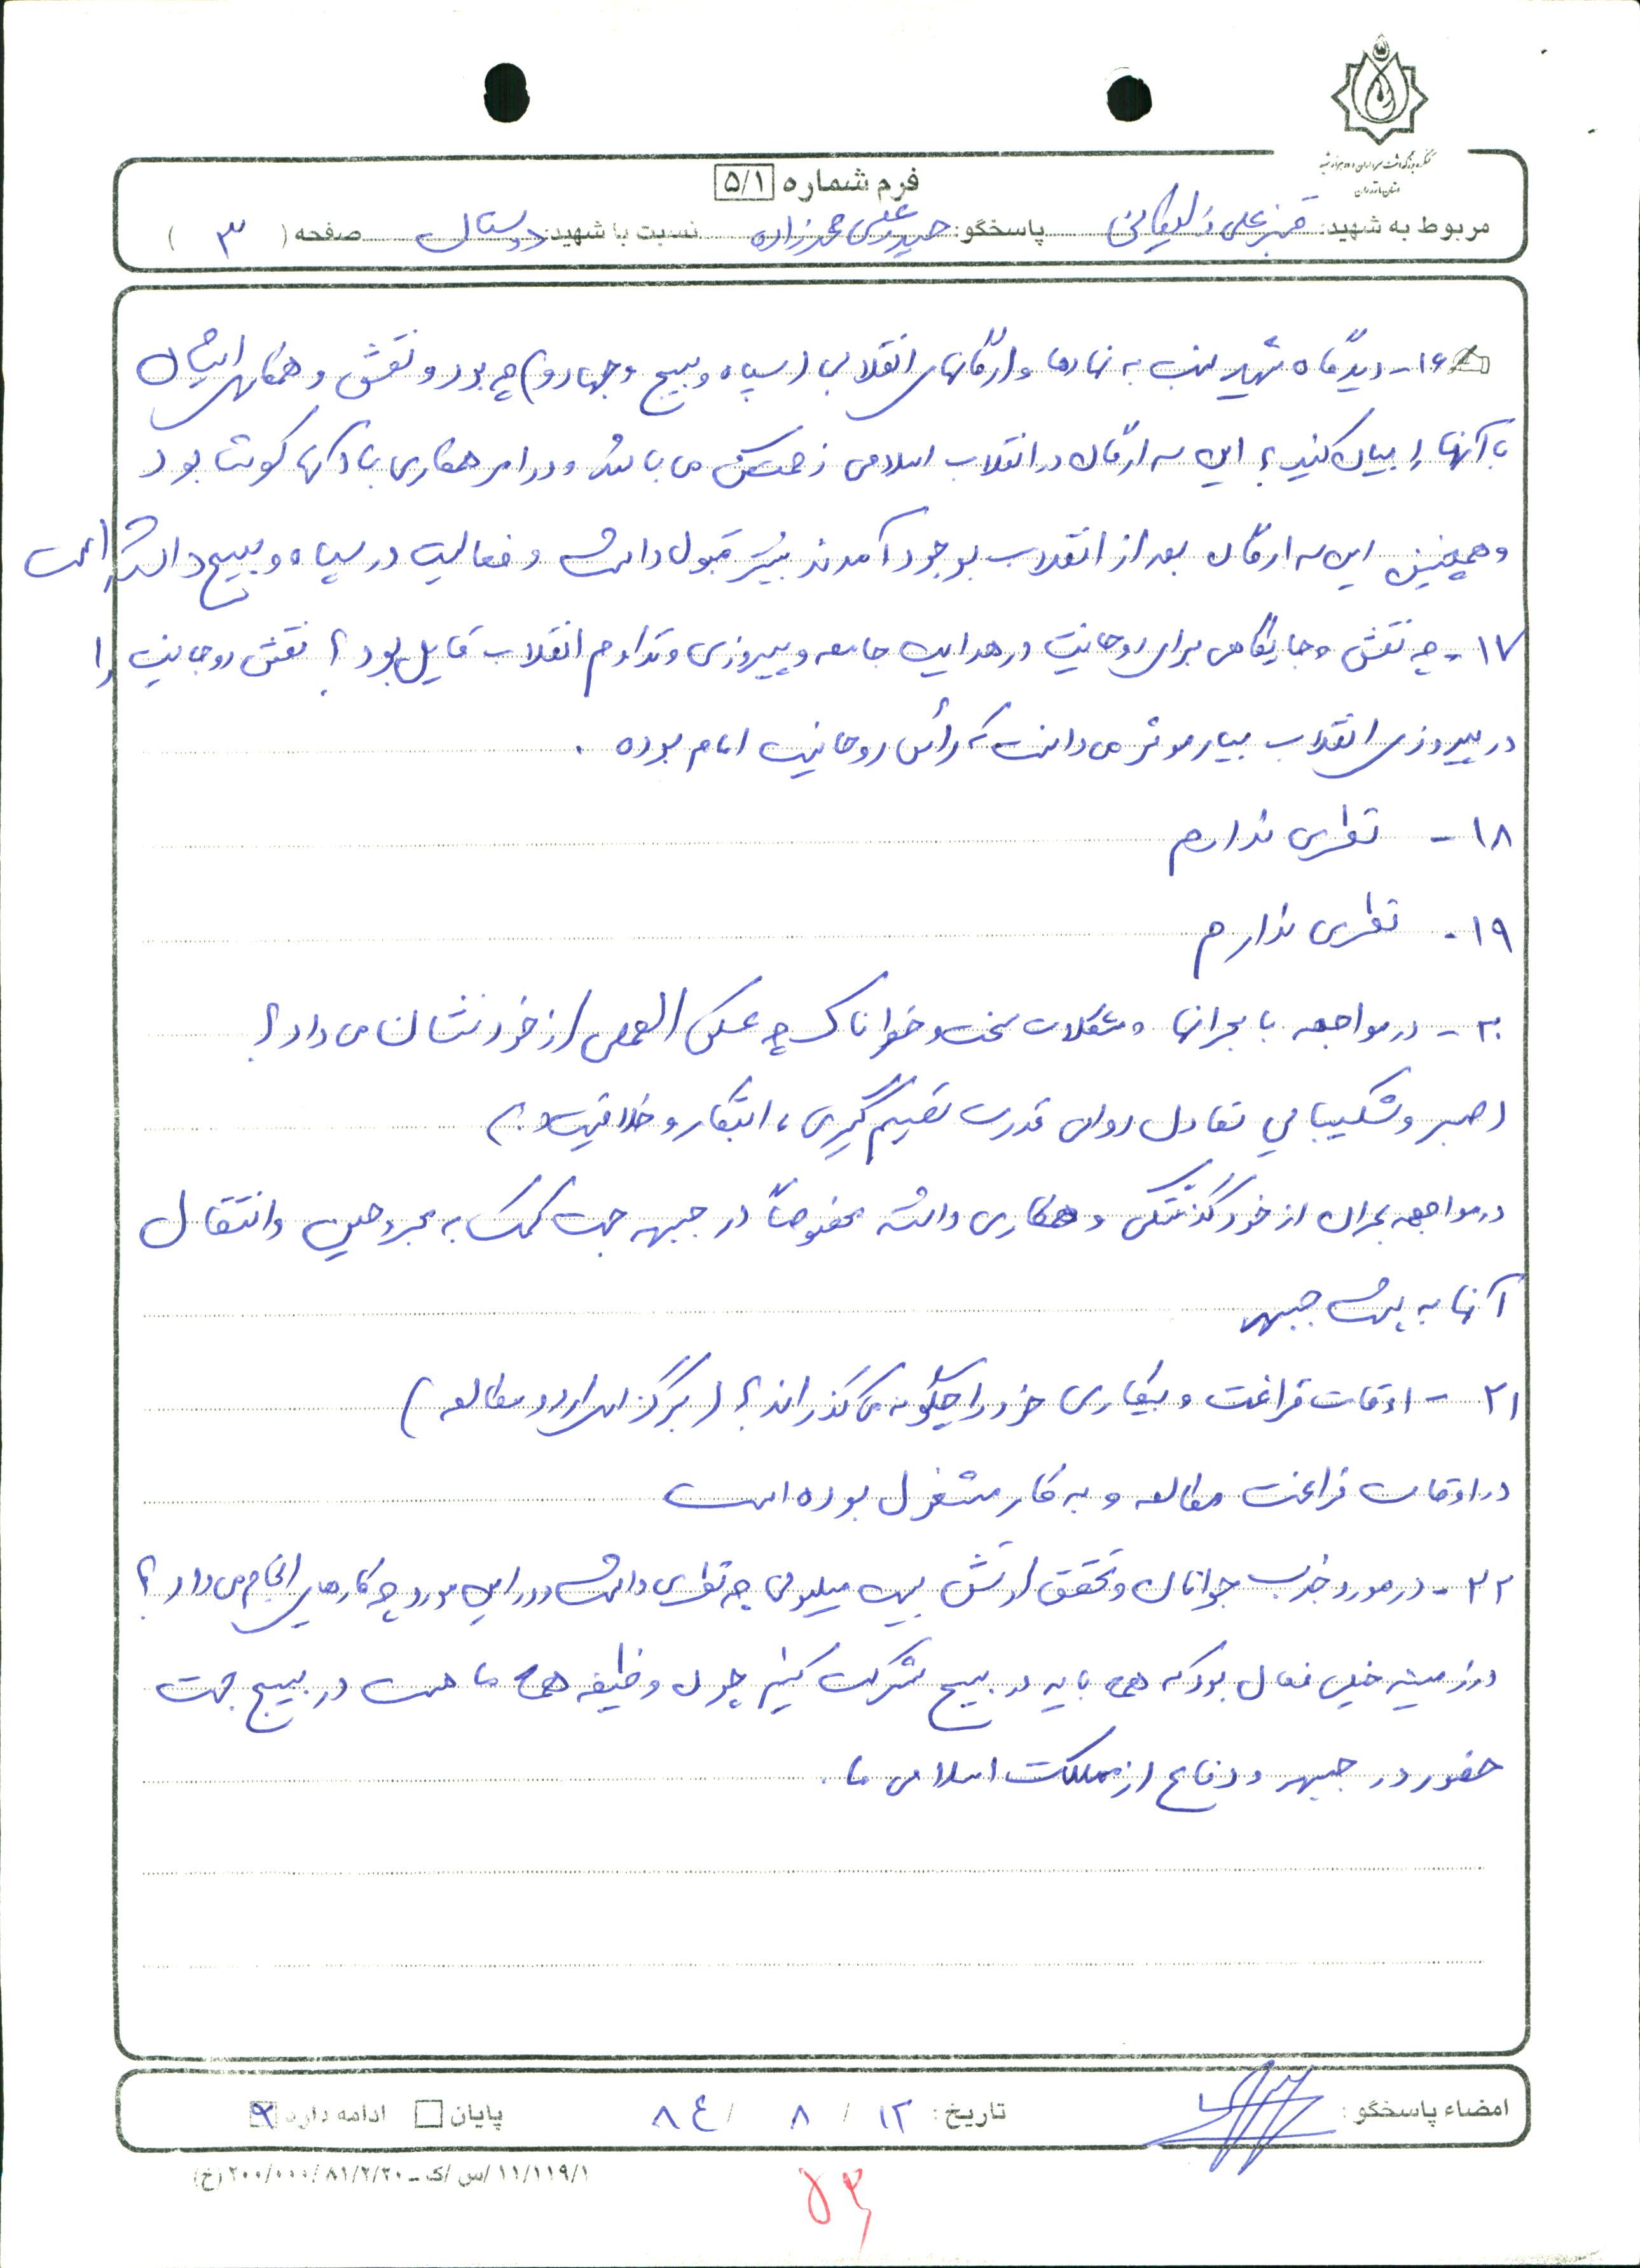 کنگره بزرگداشت سرداران و ده هزار شهید
استان مازندران
فرم شماره ۵/۱
مربوط به شهید: قنبرعلی پاسخگو: حیدرعلی محمدزاده نسبت با شهید: دوستان صفحه ( ۳ )
۱۶- دیدگاه شهید نسبت به نهادها و ارگانهای انقلابی (سپاه و بسیج و جهاد و) چه بود و نقش و همکاری ایشان
با آنها را بیان کنید؟ این سه ارگان در انقلاب اسلامی زحمتکش می باشند و در امر همکاری با آنها کوشا بود
و همچنین این سه ارگان بعد از انقلاب بوجود آمدند بیشتر قبول داشت و فعالیت در سپاه و بسیج داشته است
۱۷- چه نقش و جایگاهی برای روحانیت در هدایت جامعه و پیروزی و تداوم انقلاب قایل بود؟ نقش روحانیت را
در پیروزی انقلاب بسیار موثر می دانست که رأس روحانیت امام بوده .
۱۸- نظری ندارم
۱۹- نظری ندارم
۲۰- در مواجهه با بحرانها و مشکلات سخت و خطرناک چه عکس العملی از خود نشان می داد؟
(صبر و شکیبایی تعادل روانی قدرت تصمیم گیری، ابتکار و خلاقیت و..)
در مواجهه بحران از خود گذشتگی و همکاری داشته مخصوصاً در جبهه جهت کمک به مجروحین و انتقال
آنها به پشت جبهه
۲۱- اوقات فراغت و بیکاری خود را چگونه می گذراند؟ (برگزاری اردو مطالعه)
در اوقات فراغت مطالعه و به کار مشغول بوده است
۲۲- در مورد جذب جوانان و تحقق ارتش بیست میلیونی چه نظری داشت و در این مورد چه کارهایی انجام می داد؟
در زمینه خیلی فعال بود که همه باید در بسیج شرکت کنیم چون وظیفه همه ما هست در بسیج جهت
حضور در جبهه و دفاع از مملکت اسلامی ما.
امضاء پاسخگو: تاریخ: ۱۲ / ۸ / ۸۴ پایان ادامه دارد
۱۱/۱۱۹/۱/س/ک-۸۱/۲/۲۰/۲۰۰/۰۰۰(خ)
۵۳